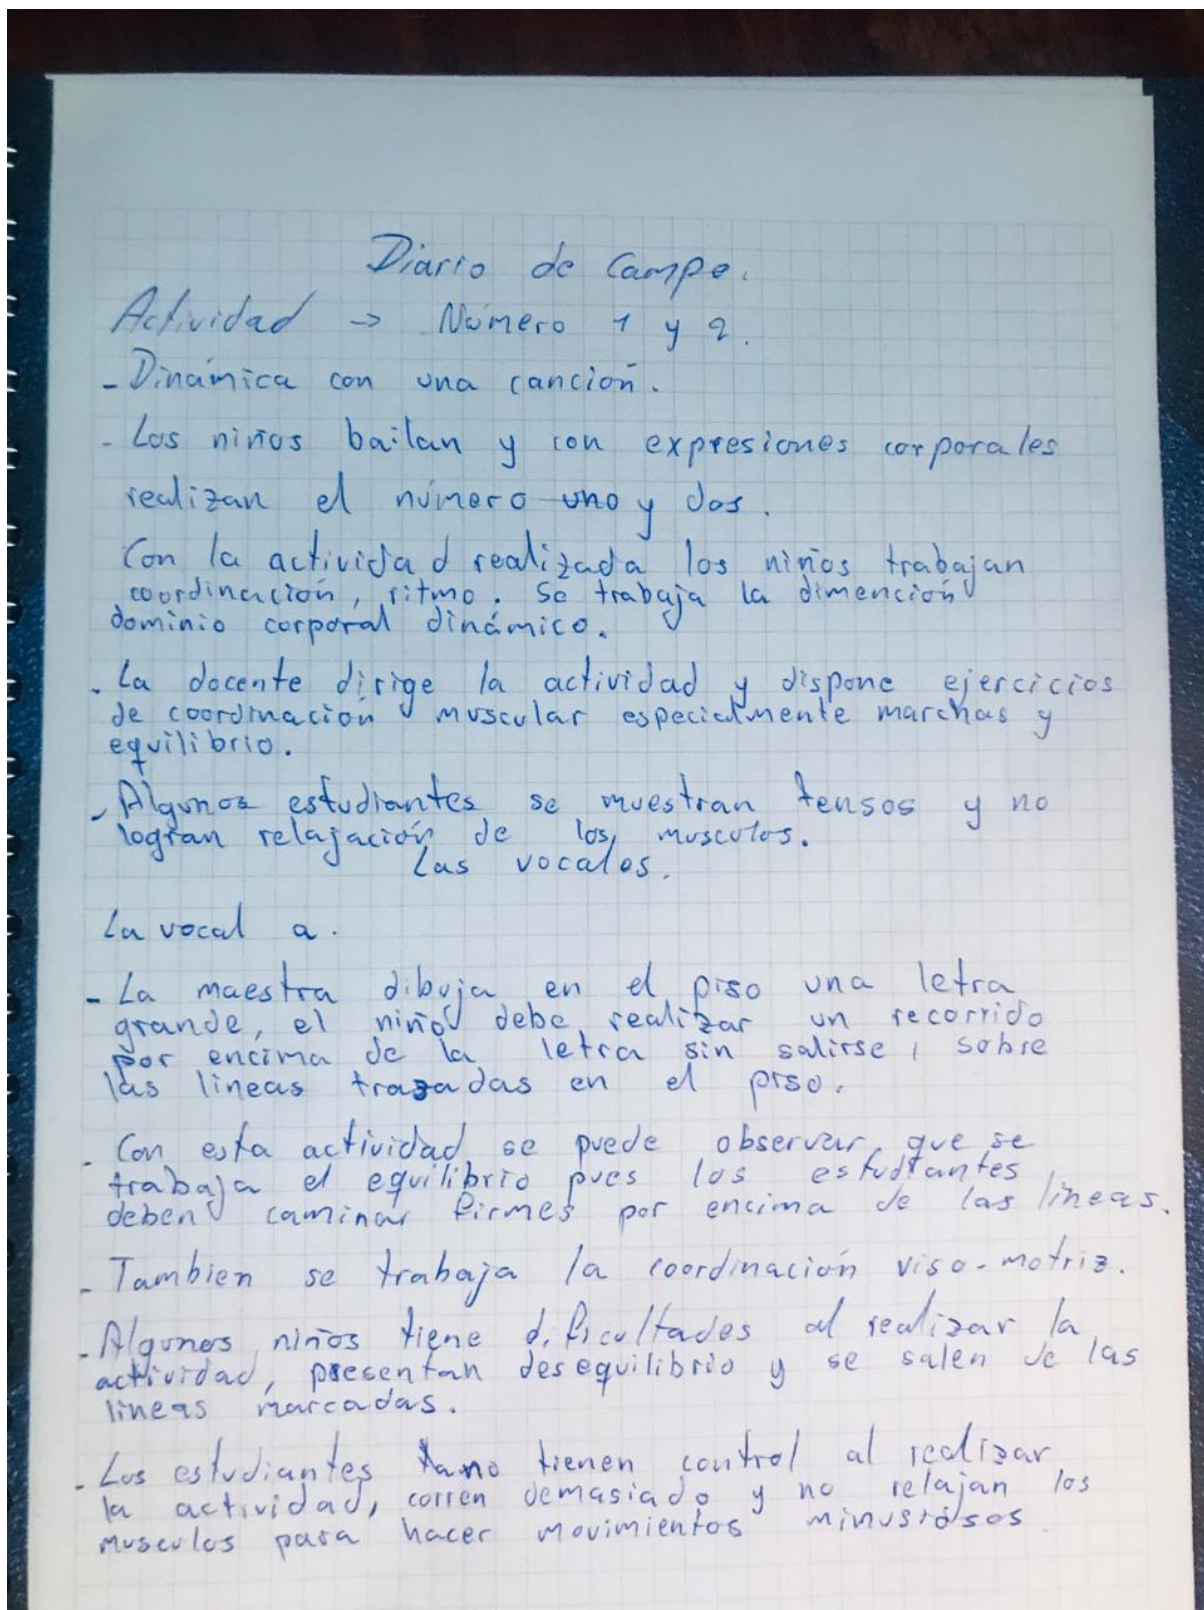 Diario de Campo.
Actividad → Número 1 y 2.
- Dinámica con una canción.
- Los niños bailan y con expresiones corporales
realizan el número uno y dos.
Con la actividad realizada los niños trabajan
coordinación, ritmo. Se trabaja la dimención
dominio corporal dinámico.
- La docente dirige la actividad y dispone ejercicios
de coordinación muscular especialmente marchas y
equilibrio.
- Algunos estudiantes se muestran tensos y no
logran relajación de los musculos.
Las vocales.
La vocal a.
- La maestra dibuja en el piso una letra
grande, el niño debe realizar un recorrido
por encima de la letra sin salirse, sobre
las lineas trazadas en el piso.
- Con esta actividad se puede observar que se
trabaja el equilibrio pues los estudiantes
deben caminar firmes por encima de las líneas.
- Tambien se trabaja la coordinación viso-motriz.
- Algunos niños tiene dificultades al realizar la
actividad, presentan desequilibrio y se salen de las
lineas marcadas.
- Los estudiantes no tienen control al realizar
la actividad, corren demasiado y no relajan los
musculos para hacer movimientos minusiósos